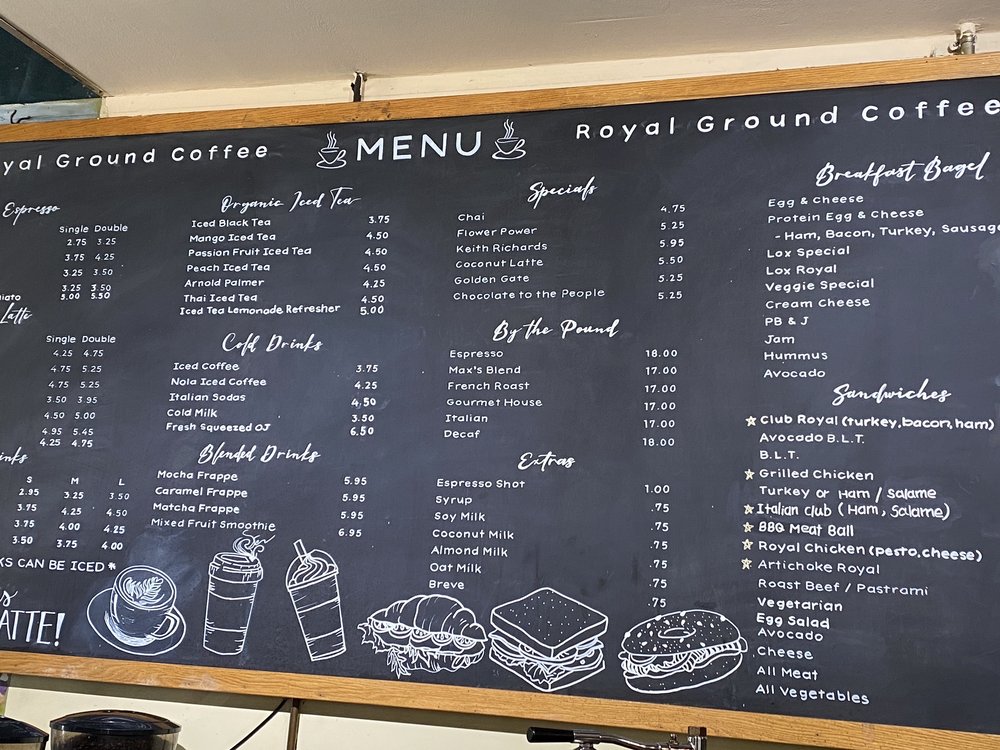 yal Ground Coffee
MENU
Royal Ground Coffee
Espresso
Single Double
2.75 3.25
3.75 4.25
3.25 3.50
3.25 3.50
iato 5.00 5.50
Latte
Single Double
4.25 4.75
4.75 5.25
4.75 5.25
3.50 3.95
4.50 5.00
4.95 5.45
4.25 4.75
inks
S M L
2.95 3.25 3.50
3.75 4.25 4.50
3.75 4.00 4.25
3.50 3.75 4.00
KS CAN BE ICED *
ATTE!
Organic Iced Tea
Iced Black Tea 3.75
Mango Iced Tea 4.50
Passion Fruit Iced Tea 4.50
Peach Iced Tea 4.50
Arnold Palmer 4.25
Thai Iced Tea 4.50
Iced Tea Lemonade Refresher 5.00
Cold Drinks
Iced Coffee 3.75
Nola Iced Coffee 4.25
Italian Sodas 4.50
Cold Milk 3.50
Fresh Squeezed OJ 6.50
Blended Drinks
Mocha Frappe 5.95
Caramel Frappe 5.95
Matcha Frappe 5.95
Mixed Fruit Smoothie 6.95
Specials
Chai 4.75
Flower Power 5.25
Keith Richards 5.95
Coconut Latte 5.50
Golden Gate 5.25
Chocolate to the People 5.25
By the Pound
Espresso 18.00
Max's Blend 17.00
French Roast 17.00
Gourmet House 17.00
Italian 17.00
Decaf 18.00
Extras
Espresso Shot 1.00
Syrup .75
Soy Milk .75
Coconut Milk .75
Almond Milk .75
Oat Milk .75
Breve .75
Breakfast Bagel
Egg & Cheese
Protein Egg & Cheese
- Ham, Bacon, Turkey, Sausage
Lox Special
Lox Royal
Veggie Special
Cream Cheese
PB & J
Jam
Hummus
Avocado
Sandwiches
Club Royal (turkey, bacon, ham)
Avocado B.L.T.
B.L.T.
Grilled Chicken
Turkey or Ham / Salame
Italian Club (Ham, Salame)
BBQ Meat Ball
Royal Chicken (pesto, cheese)
Artichoke Royal
Roast Beef / Pastrami
Vegetarian
Egg Salad
Avocado
Cheese
All Meat
All Vegetables